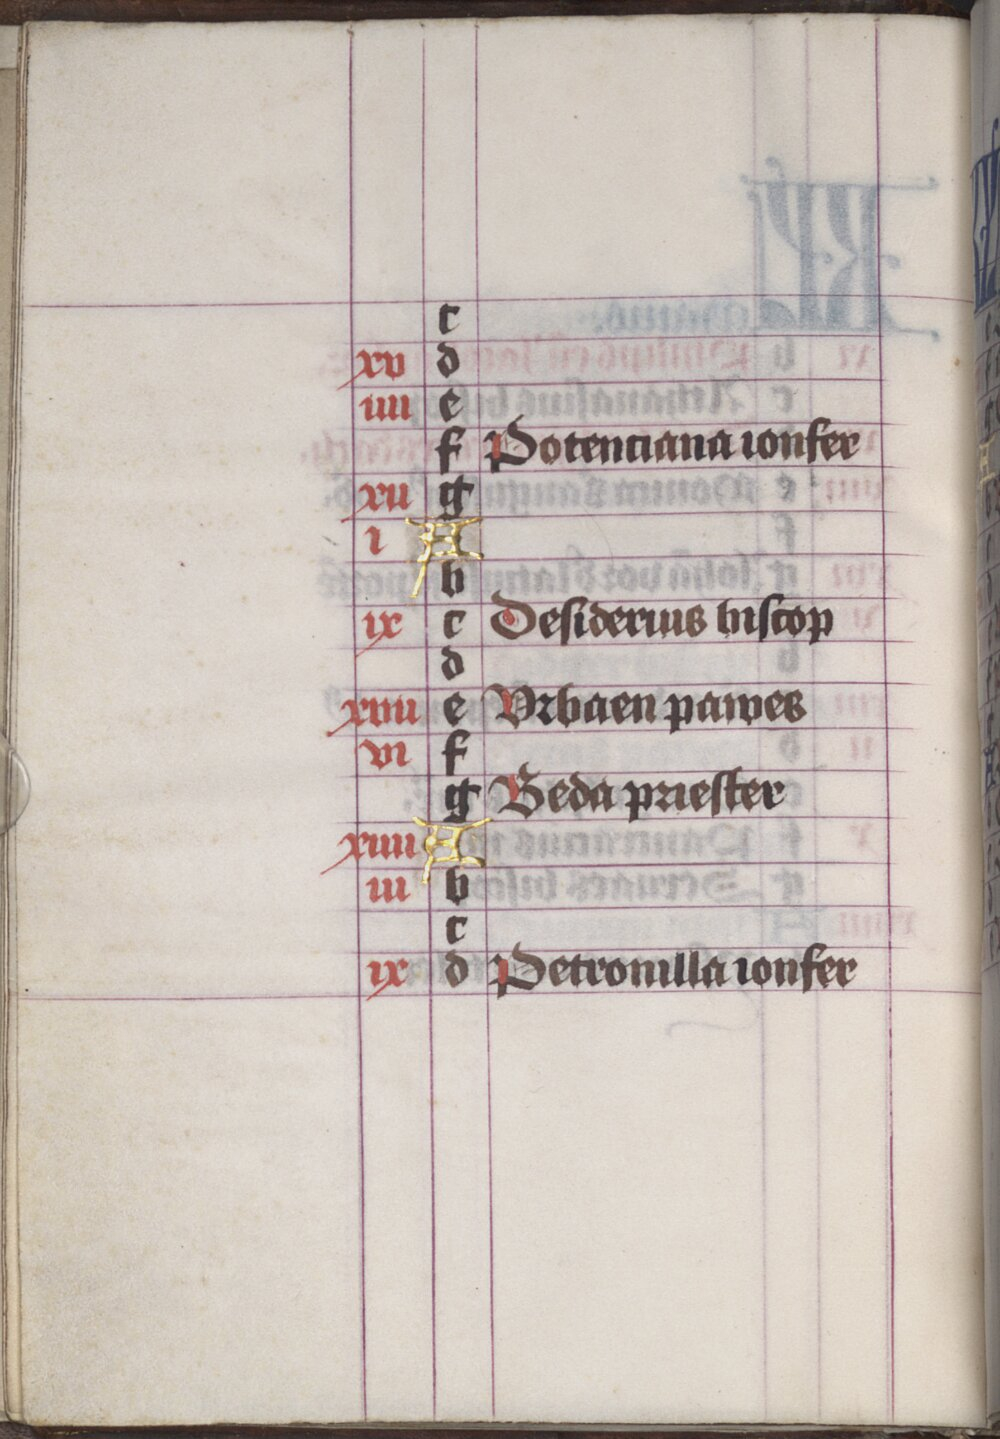 c
xv d
iiii e
f Potenciana ionfer
xii g
i A
b
ix c Desiderius biscop
d
xviii e Vrbaen pawes
vi f
g Beda priester
xiiii A
iii b
c
ix d Petronilla ionfer